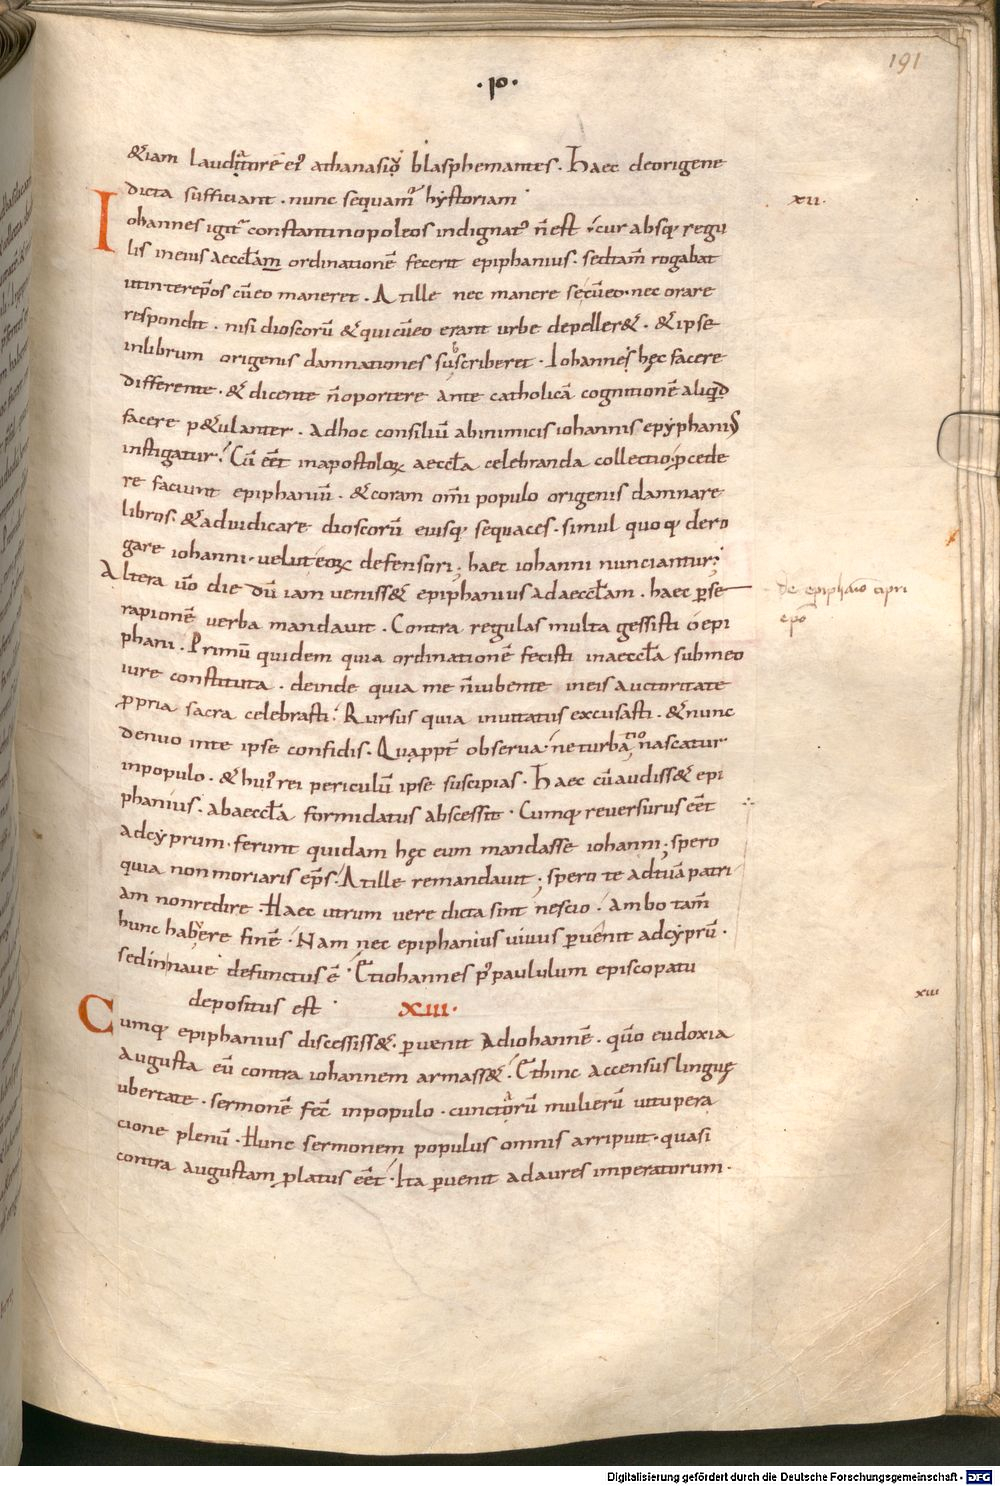 191
·io·
&iam laudatorē ei᾽ athanasiū blasphemantes· Haec deorigene
dicta sufficiant· nunc sequam᾽ hẏstoriam·
xii·
Iohannes igit᾽ constantinopoleos indignat᾽ ñ est· cur absq; regu
lis ineius aeccl̄am ordinationē fecerit epiphanius· sed tam̄ rogabat
ut inter ep̄os cū eo maneret· At ille nec manere se cū eo· nec orare
respondit· nisi dioscorū & qui cū eo erant urbe depeller&· & ipse
inlibrum origenis damnationes subscriberet· Iohanne hęc facere
differente· & dicente ñ oportere ante catholicā cognitionē aliqd
facere p&ulanter· Adhoc consiliū abinimicis iohannis epẏphanius
instigatur· Cū eēt inapostoloꝝ aeccl̄a celebranda collectio, ꝓcede
re faciunt epiphaniū· & coram om̄i populo origenis damnare
libros· & adiudicare dioscorū eiusq; sequaces· simul quoq; dero
gare iohanni· velut eoꝝ defensori; haec iohanni nunciantur;
Altera ūo die dū iam veniss& epiphanius adaeccl̄am· haec ꝑse
De epiphanio cipri
epō
rapionē verba mandauit· Contra regulas multa gessisti o epi
phani· Primū quidem quia ordinationē fecisti inaeccl̄a sub meo
iure constituta· deinde quia me ñ iubente ineis auctoritate
ꝓpria sacra celebrasti· Rursus quia inuitatus excusasti· & nunc
denuo inte ipse confidis· Quaꝓpt̄ observa· ne turbatio nascatur
inpopulo· & hui᾽ rei periculū ipse suscipias· Haec cū audiss& epi
phanius· abaeccl̄a formidatus abscessit· Cumq; reversurus eēt
adcẏprum· ferunt quidam hęc eum mandasse iohanni; spero
quia non moriaris ep̄s· At ille remandauit; spero te ad tuā patri
am non redire· Haec utrum vere dicta sint nescio· Ambo tam̄
hunc habuere finē· Nam nec epiphanius vivus ꝑvenit adcẏprū·
sed innave defunctus ē· Et iohannes p᾽ paululum episcopatu
depositus est· XIII·
xiii
Cumq; epiphanius discessiss&· ꝑvenit Adiohannē· quō eudoxia
augusta eū contra iohannem armass&· Et hinc accensus linguę
ubertate· sermonē fec̄ inpopulo· cunctarū mulierū vitupera
cione plenū· Hunc sermonem populus omnis arripuit· quasi
contra augustam ꝓlatus eēt· Ita ꝑvenit adaures imperatorum·
Digitalisierung gefördert durch die Deutsche Forschungsgemeinschaft - DFG